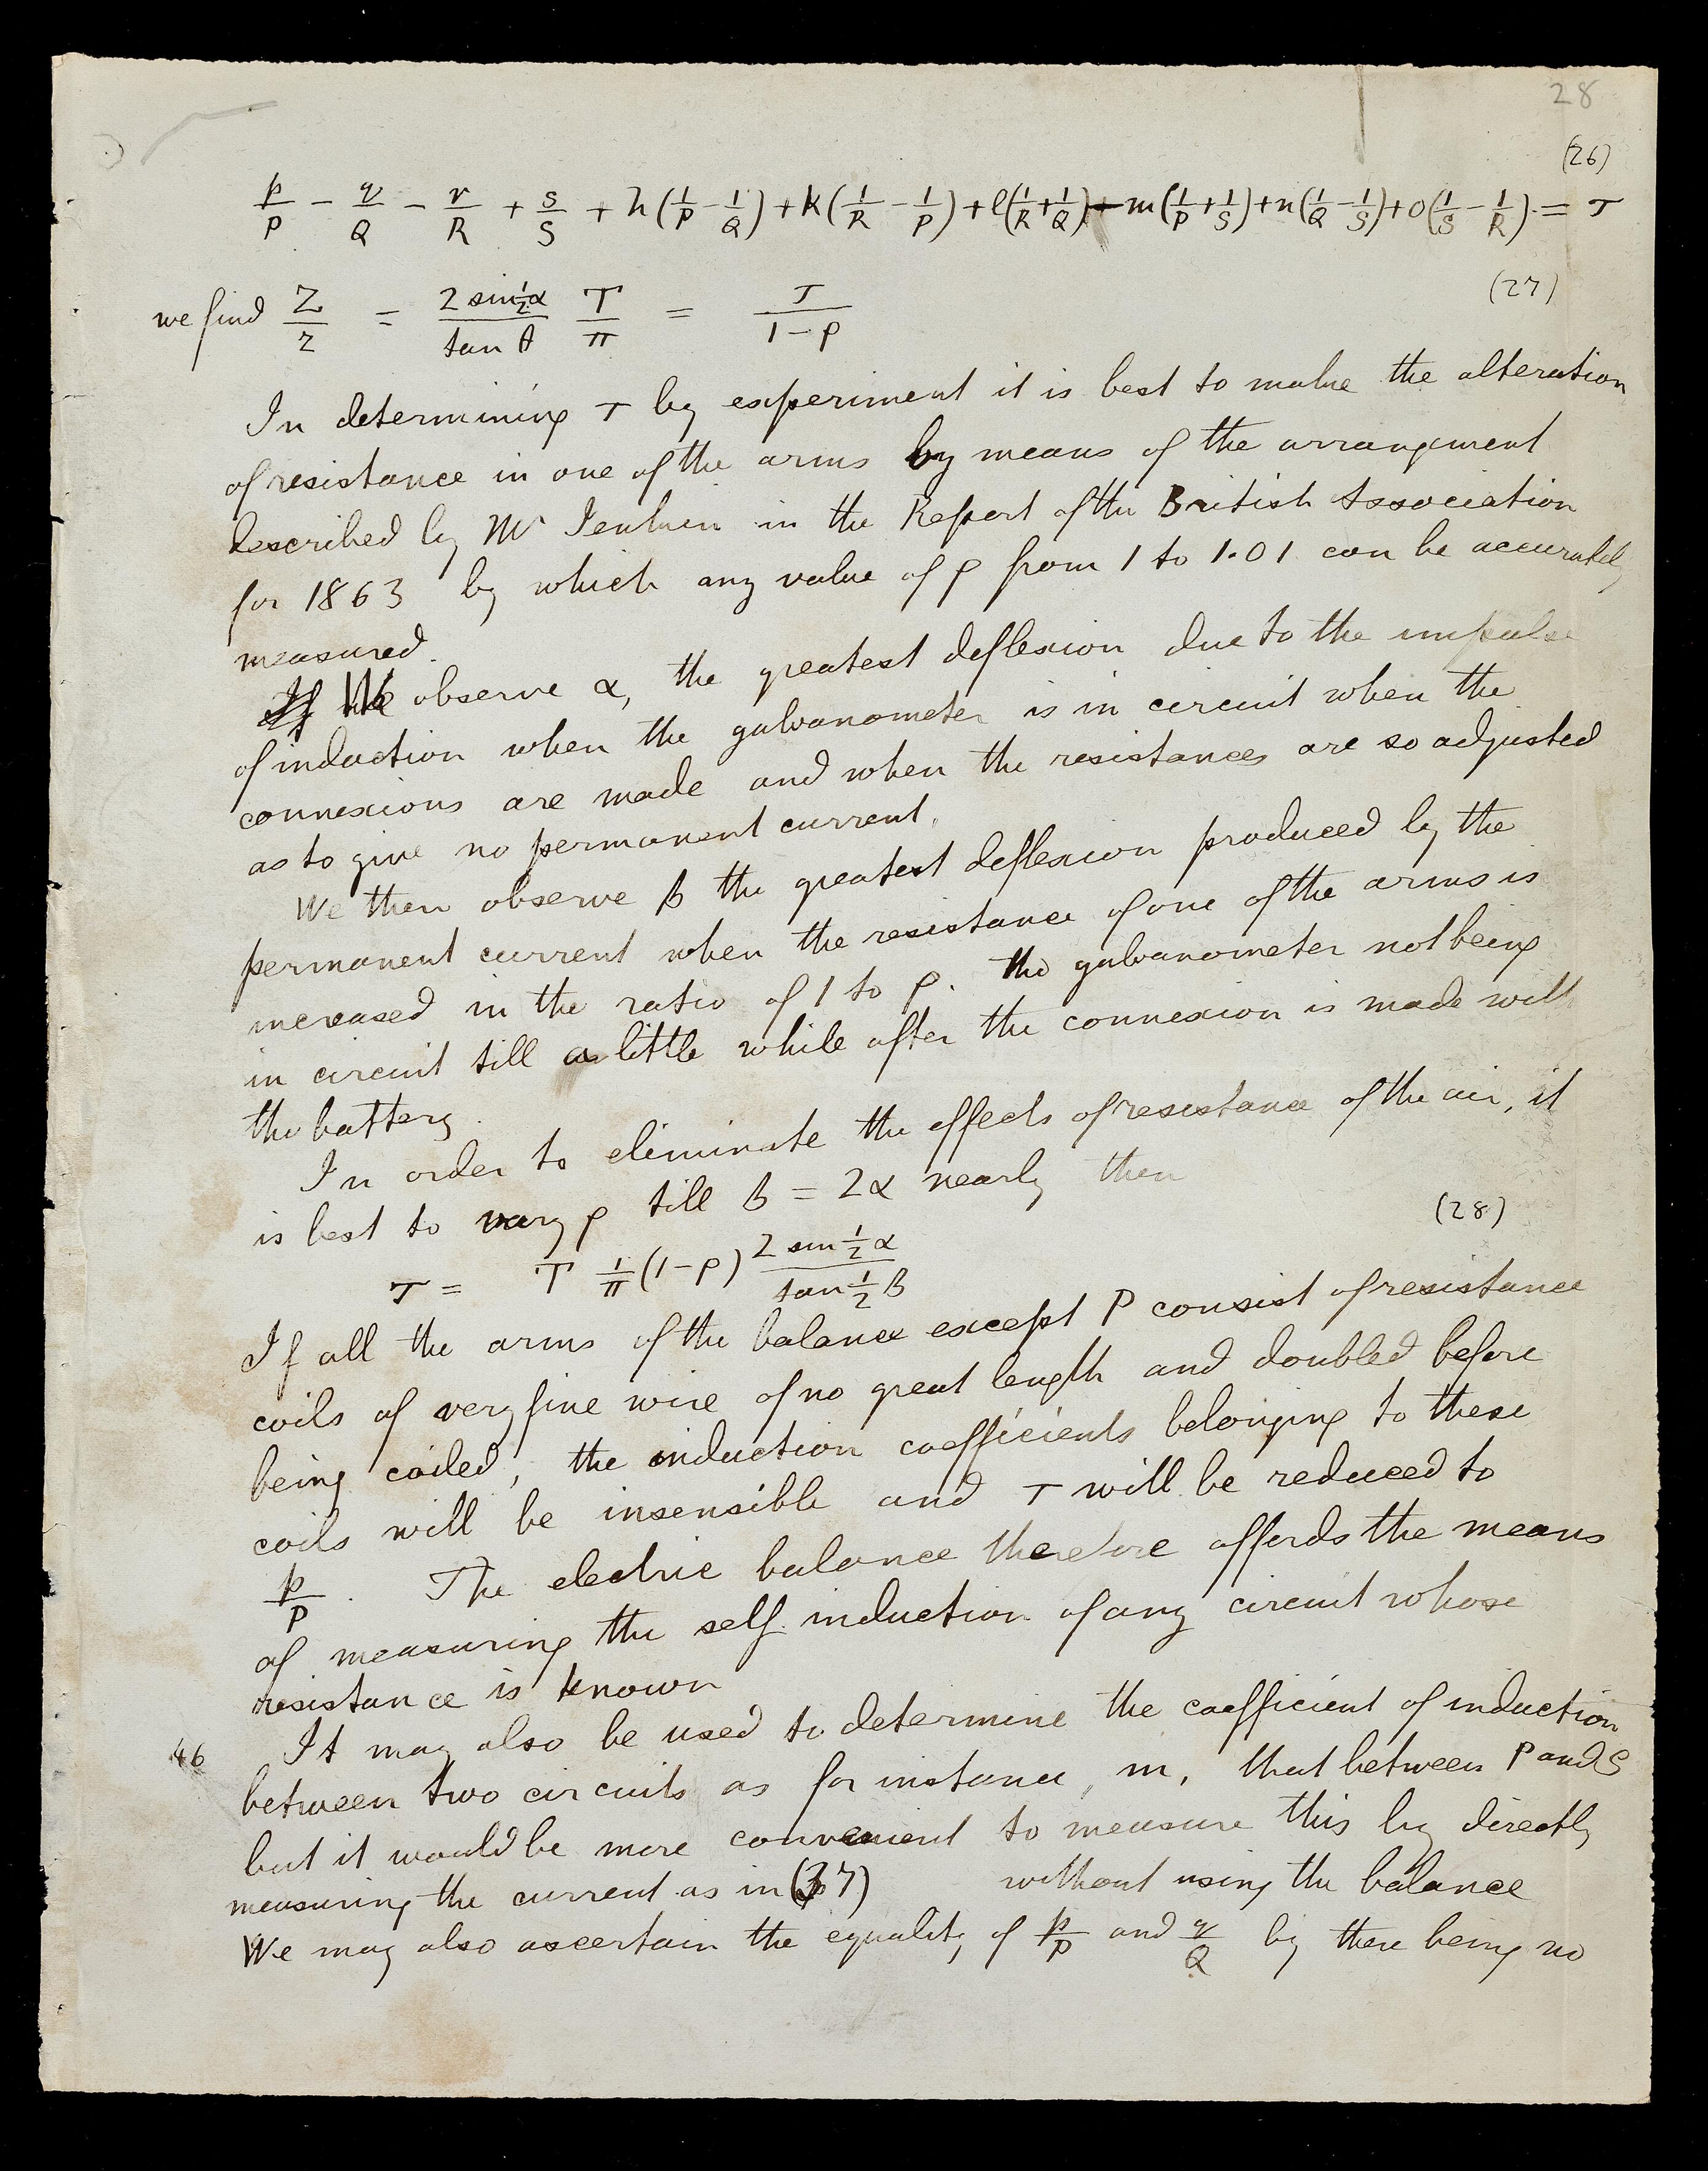 28
(26)
p/P − q/Q − r/R + s/S + h(1/P − 1/Q) + k(1/R − 1/P) + l(1/R + 1/Q) − m(1/P + 1/S) + n(1/Q − 1/S) + o(1/S − 1/R) = τ
(27)
we find Z/z = 2 sin ½α / tan θ T/π = τ / 1−ρ
In determining τ by experiment it is best to make the alteration
of resistance in one of the arms by means of the arrangement
described by Mr Jenkin in the Report of the British Association
for 1863 by which any value of ρ from 1 to 1.01 can be accurately
measured.
If We observe α, the greatest deflexion due to the impulse
of induction when the galvanometer is in circuit when the
connexions are made and when the resistances are so adjusted
as to give no permanent current.
We then observe β the greatest deflexion produced by the
permanent current when the resistance of one of the arms is
increased in the ratio of 1 to ρ. the galvanometer not being
in circuit till a little while after the connexion is made with
the battery.
In order to eliminate the effects of resistance of the air, it
is best to vary ρ till β = 2α nearly then
(28)
τ = T 1/π (1−ρ) 2 sin ½α / tan ½β
If all the arms of the balance except P consist of resistance
coils of very fine wire of no great length and doubled before
being coiled, the induction coefficients belonging to these
coils will be insensible and τ will be reduced to
p/P. The electric balance therefore affords the means
of measuring the self induction of any circuit whose
resistance is known
46 It may also be used to determine the coefficient of induction
between two circuits as for instance, m, that between P and S
but it would be more convenient to measure this by directly
measuring the current as in (37) without using the balance
We may also ascertain the equality of p/P and q/Q by there being no